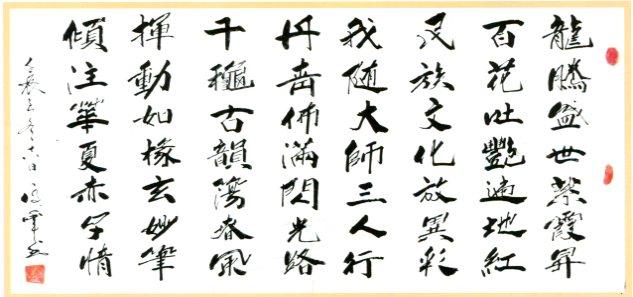 龍騰盛世紫霞昇
百花吐艷遍地紅
民族文化放異彩
我随大師三人行
丹青佈滿閃光路
千穐古韻蕩春風
揮動如椽玄妙筆
傾注華夏赤子情